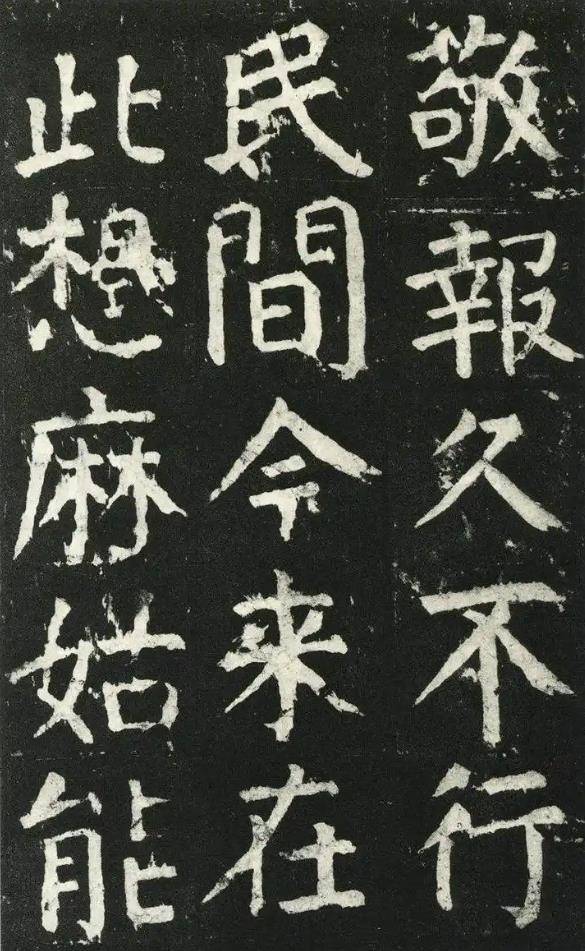 敬報久不行
民間今来在
此想麻姑能